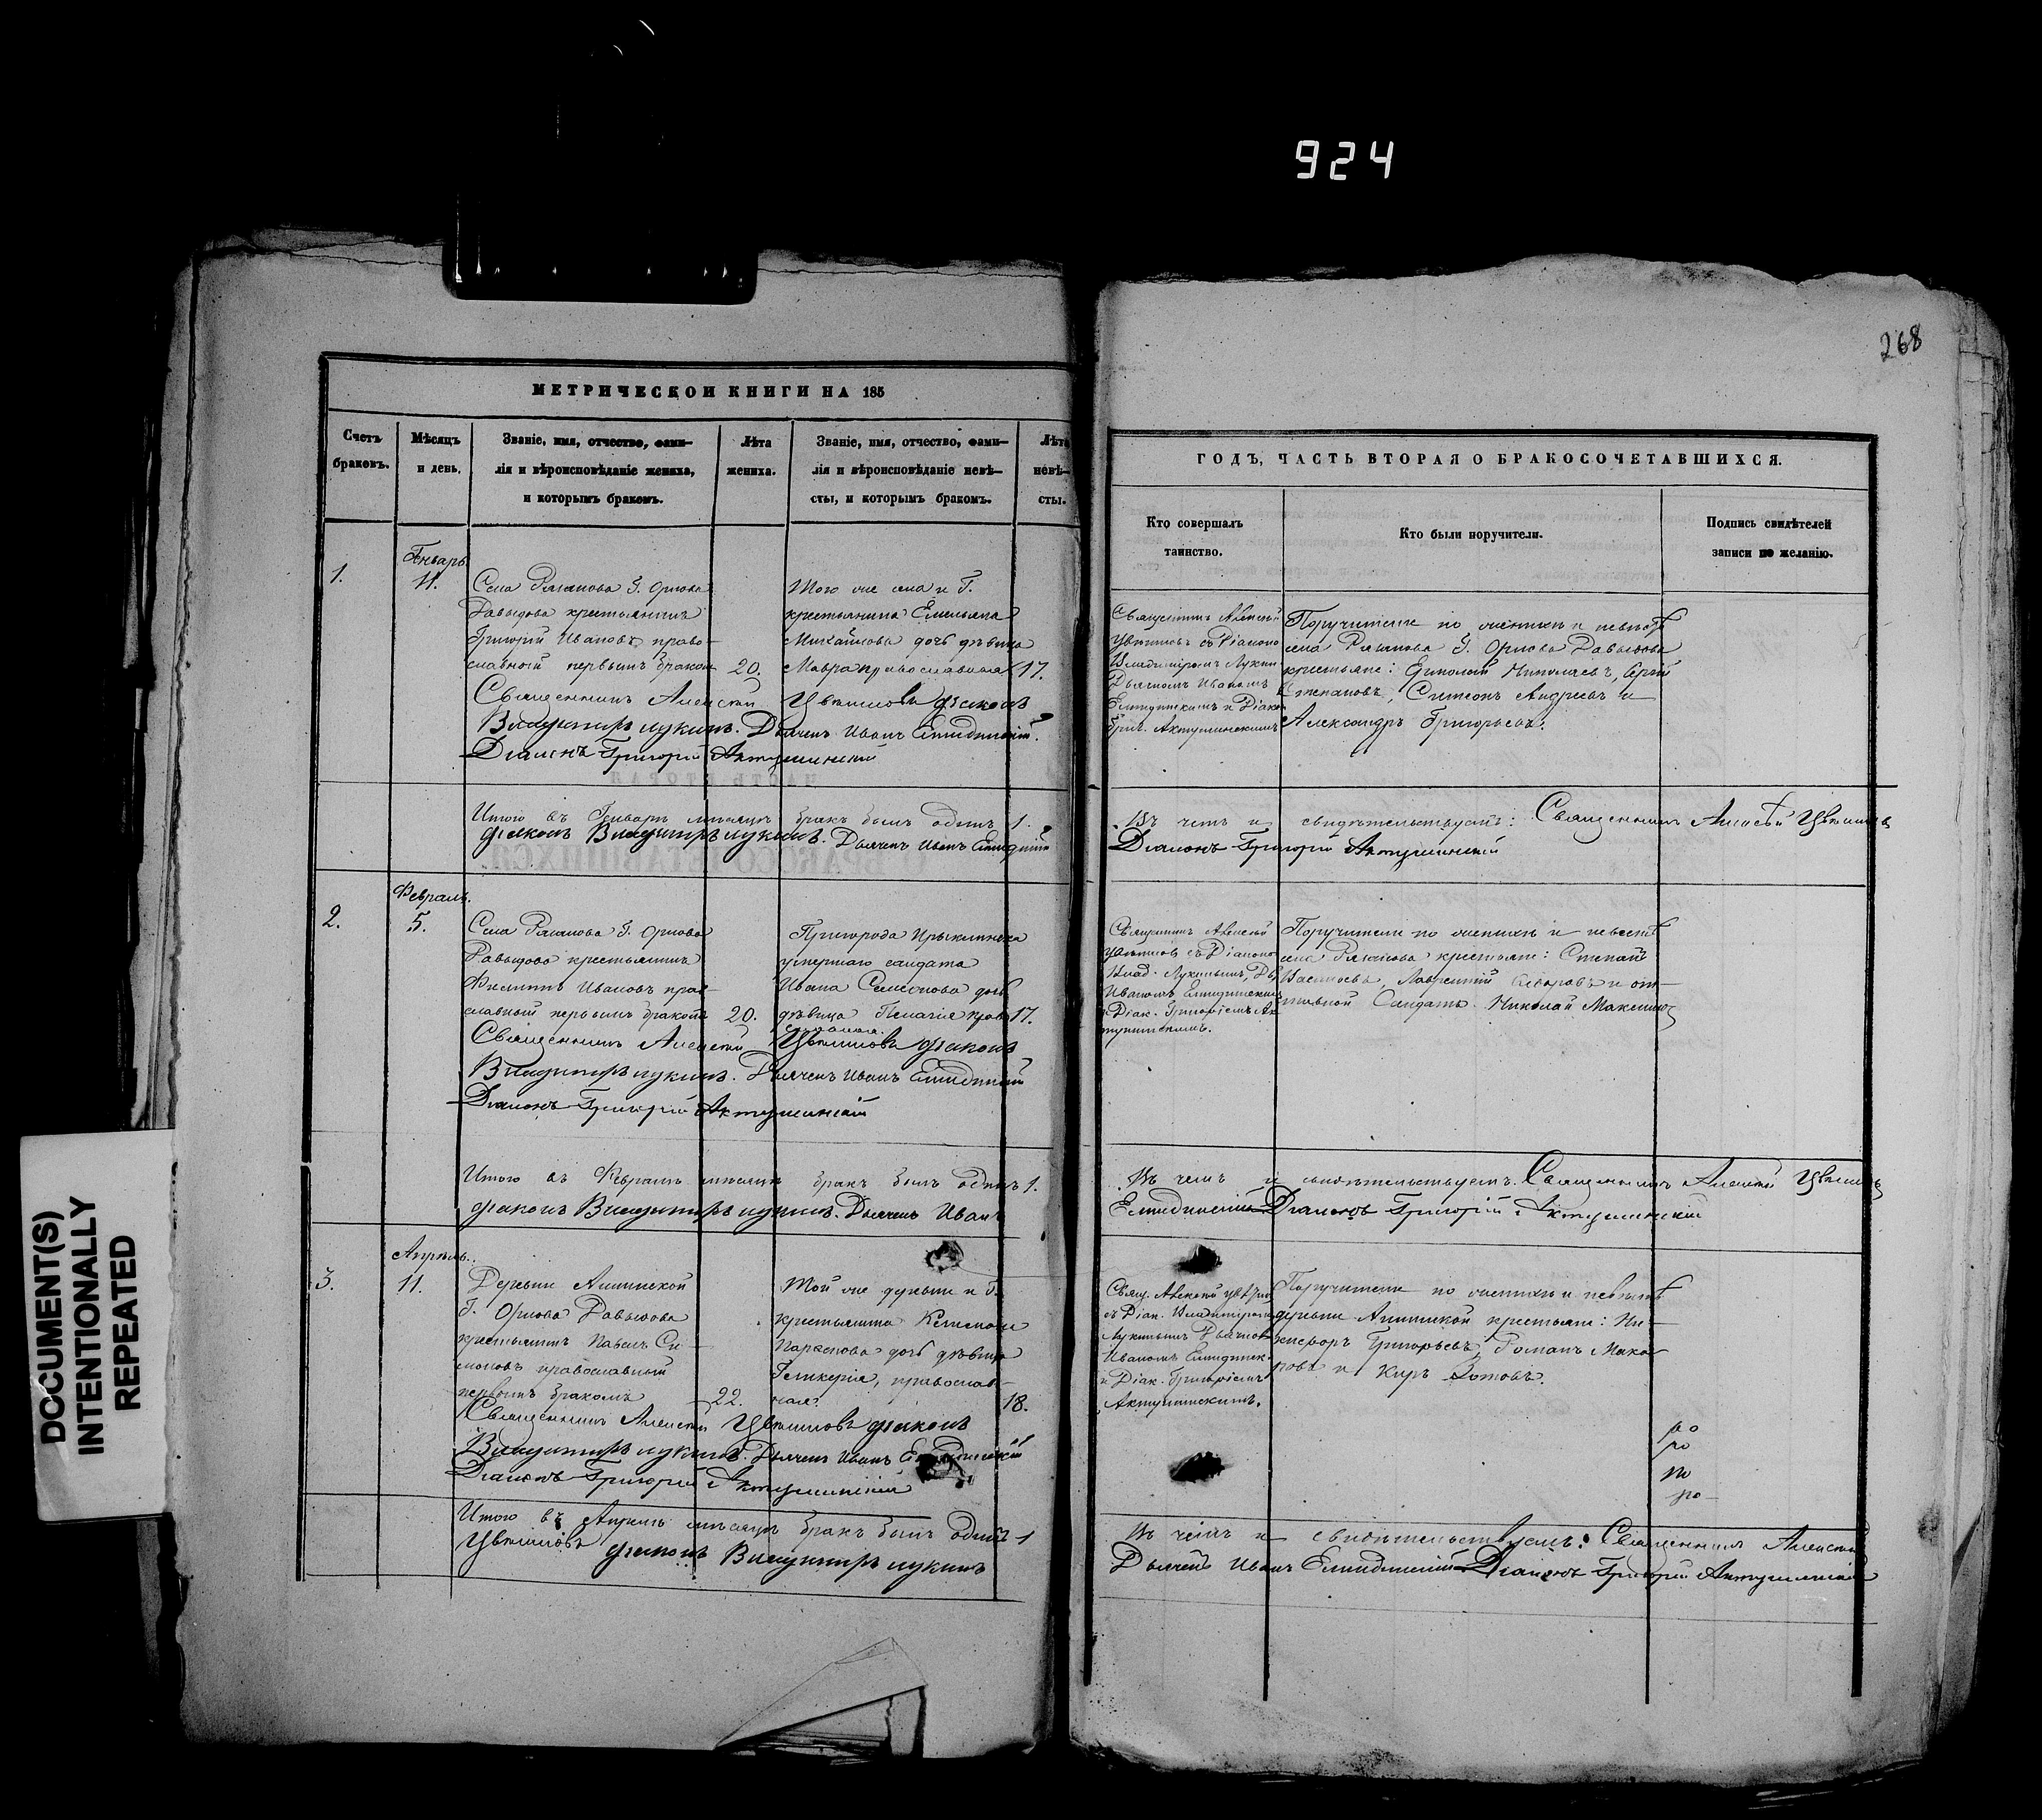 924
268
DOCUMENT(S)
INTENTIONALLY
REPEATED
МЕТРИЧЕСКОЙ КНИГИ НА 185
Счетъ браковъ.
Мѣсяцъ и день.
Званіе, имя, отчество, фами-
лія и вѣроисповѣданіе жениха,
и которымъ бракомъ.
Лѣта
жениха.
Званіе, имя, отчество, фами-
лія и вѣроисповѣданіе невѣ-
сты, и которымъ бракомъ.
Лѣта
невѣ-
сты.
1.
Генварь
11.
Села Г. Орлова
Давыдова крестьянинъ
Григорій Ивановъ право-
славный первымъ бракомъ
20.
Того же села и Г.
крестьянина Емельяна
Михайлова дочь дѣвица
Мавра православная
17.
Священникъ Алексѣй Цвѣтковъ Діаконъ
Владимиръ Лукинъ. Дьячекъ Иванъ
Діаконъ Григорій
Итого въ Генварѣ мѣсяцѣ бракъ былъ одинъ 1.
Діаконъ Владимиръ Лукинъ. Дьячекъ Иванъ
Февраль.
2.
5.
Села Г. Орлова
Давыдова крестьянинъ
Филиппъ Ивановъ прав-
славный первымъ бракомъ
20.
Пригорода
умершаго солдата
Ивана Семенова дочь
дѣвица Пелагія право
славная.
17.
Священникъ Алексѣй Цвѣтковъ Діаконъ
Владимиръ Лукинъ. Дьячекъ Иванъ
Діаконъ Григорій
Итого въ Февралѣ мѣсяцѣ бракъ былъ одинъ 1.
Діаконъ Владимиръ Лукинъ. Дьячекъ Иванъ
Апрѣль.
3.
11.
Деревни
Г. Орлова Давыдова
крестьянинъ Павелъ Си-
моновъ православный
первымъ бракомъ
22.
Той же деревни и Г.
крестьянина
дочь дѣвица
Гликерія, православ-
ная.
18.
Священникъ Алексѣй Цвѣтковъ Діаконъ
Владимиръ Лукинъ. Дьячекъ Иванъ
Діаконъ Григорій
Итого въ Апрѣлѣ мѣсяцѣ бракъ былъ одинъ 1
Цвѣтковъ Діаконъ Владимиръ Лукинъ
ГОДЪ, ЧАСТЬ ВТОРАЯ О БРАКОСОЧЕТАВШИХСЯ.
Кто совершалъ
таинство.
Кто были поручители.
Подпись свидѣтелей
записи по желанію.
Священникъ Алексѣй
Цвѣтковъ съ Діакономъ
Владимиромъ Лукин
Дьячкомъ Иваномъ
Поручители по женихѣ и невѣстѣ
села Г. Орлова Давыдова
крестьяне: Николаевъ, Сергѣй
Степановъ, Симеонъ Андреевъ и
Александръ Григорьевъ.
Въ чемъ и свидѣтельствуемъ: Священникъ Алексѣй Цвѣтковъ
Діаконъ Григорій
Священникъ Алексѣй
Цвѣтковъ съ Діакономъ
Влад. Лукинымъ, Дьяч
Иваномъ
и Діак. Григоріемъ
Поручители по женихѣ и невѣстѣ
села крестьяне: Степанъ
Васильевъ, Лаврентій и от-
ставной Солдатъ Николай Максимовъ
Въ чемъ и свидѣтельствуемъ. Священникъ Алексѣй Цвѣтковъ
Діаконъ Григорій
Свящ. Алексѣй Цвѣтков
съ Діак. Владимиромъ
Лукинымъ Дьячкомъ
Иваномъ
и Діак. Григоріемъ
Поручители по женихѣ и невѣстѣ
деревни крестьяне: Ни-
кифоръ Григорьевъ, Романъ Мака-
ровъ и Киръ Зотовъ.
Въ чемъ и свидѣтельствуемъ: Священникъ Алексѣй
Дьячекъ Иванъ Діаконъ Григорій